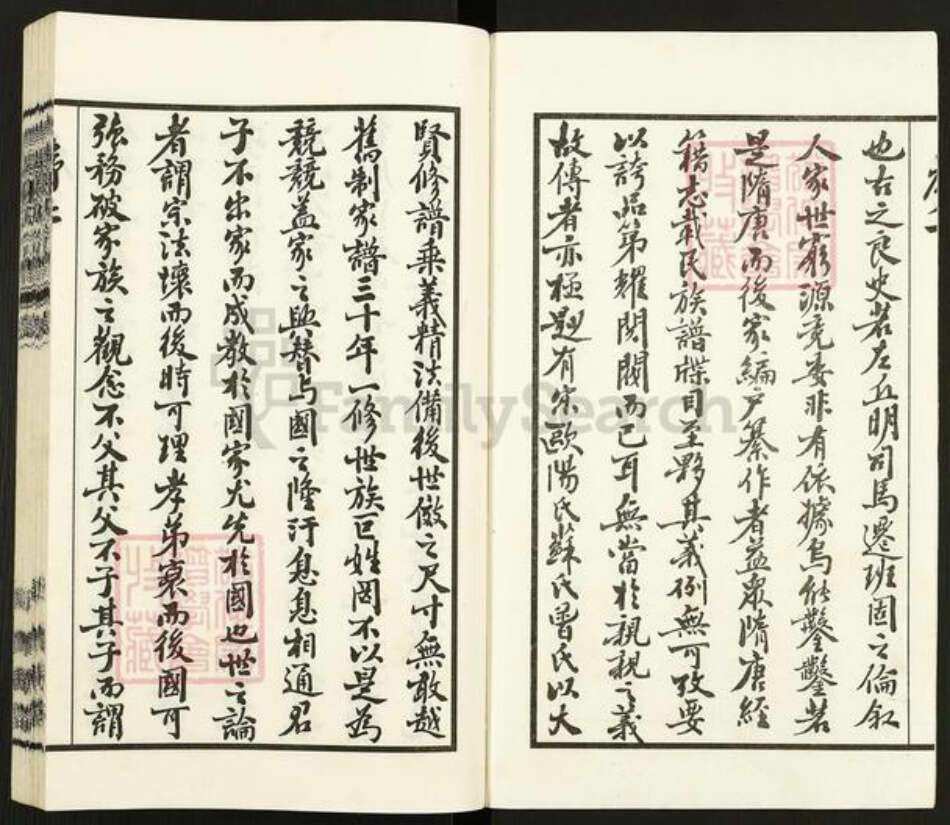 也古之良史若左丘明司馬遷班固之倫敘
人家世窮源竟委非有依據烏能鑿鑿若
是隋唐而後家編戶纂作者益眾隋唐經
籍志載氏族譜牒目至夥其義例無可攷要
以誇品第耀閥閱而已耳無當於親親之義
故傳者亦極尠有宋歐陽氏蘇氏曾氏以大
賢修譜乘義精法備後世傚之尺寸無敢越
舊制家譜三十年一修世族巨姓罔不以是為
競競蓋家之興替与國之隆汙息息相通君
子不出家而成教於國家尤先於國也世之論
者謂宗法壞而後時可理孝弟衰而後國可
強務破家族之觀念不父其父不子其子而謂
FamilySearch